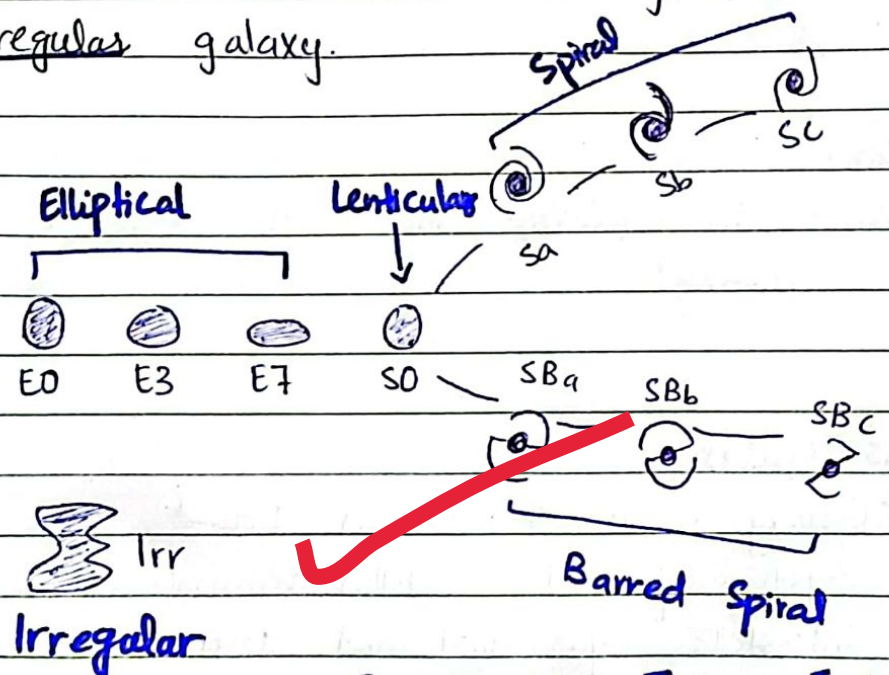 regular galaxy.
Spiral
Sc
Sb
Sa
Elliptical Lenticular
E0 E3 E7 S0
SBa SBb SBc
Irr
Barred Spiral
Irregular